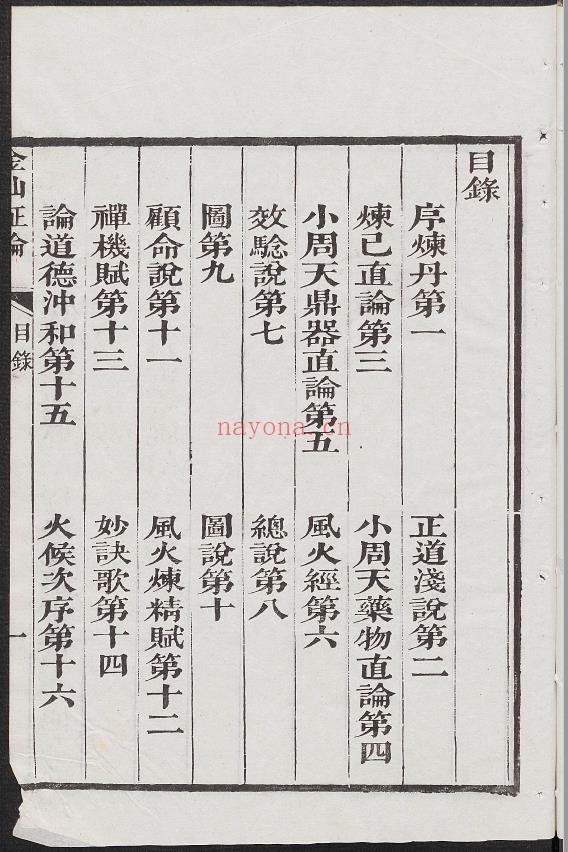 目錄
序煉丹第一
正道淺說第二
煉己直論第三
小周天藥物直論第四
小周天鼎器直論第五
風火經第六
效驗說第七
總說第八
圖第九
圖說第十
顧命說第十一
風火煉精賦第十二
禪機賦第十三
妙訣歌第十四
論道德沖和第十五
火候次序第十六
金仙証論
目錄
一
nayona.cn